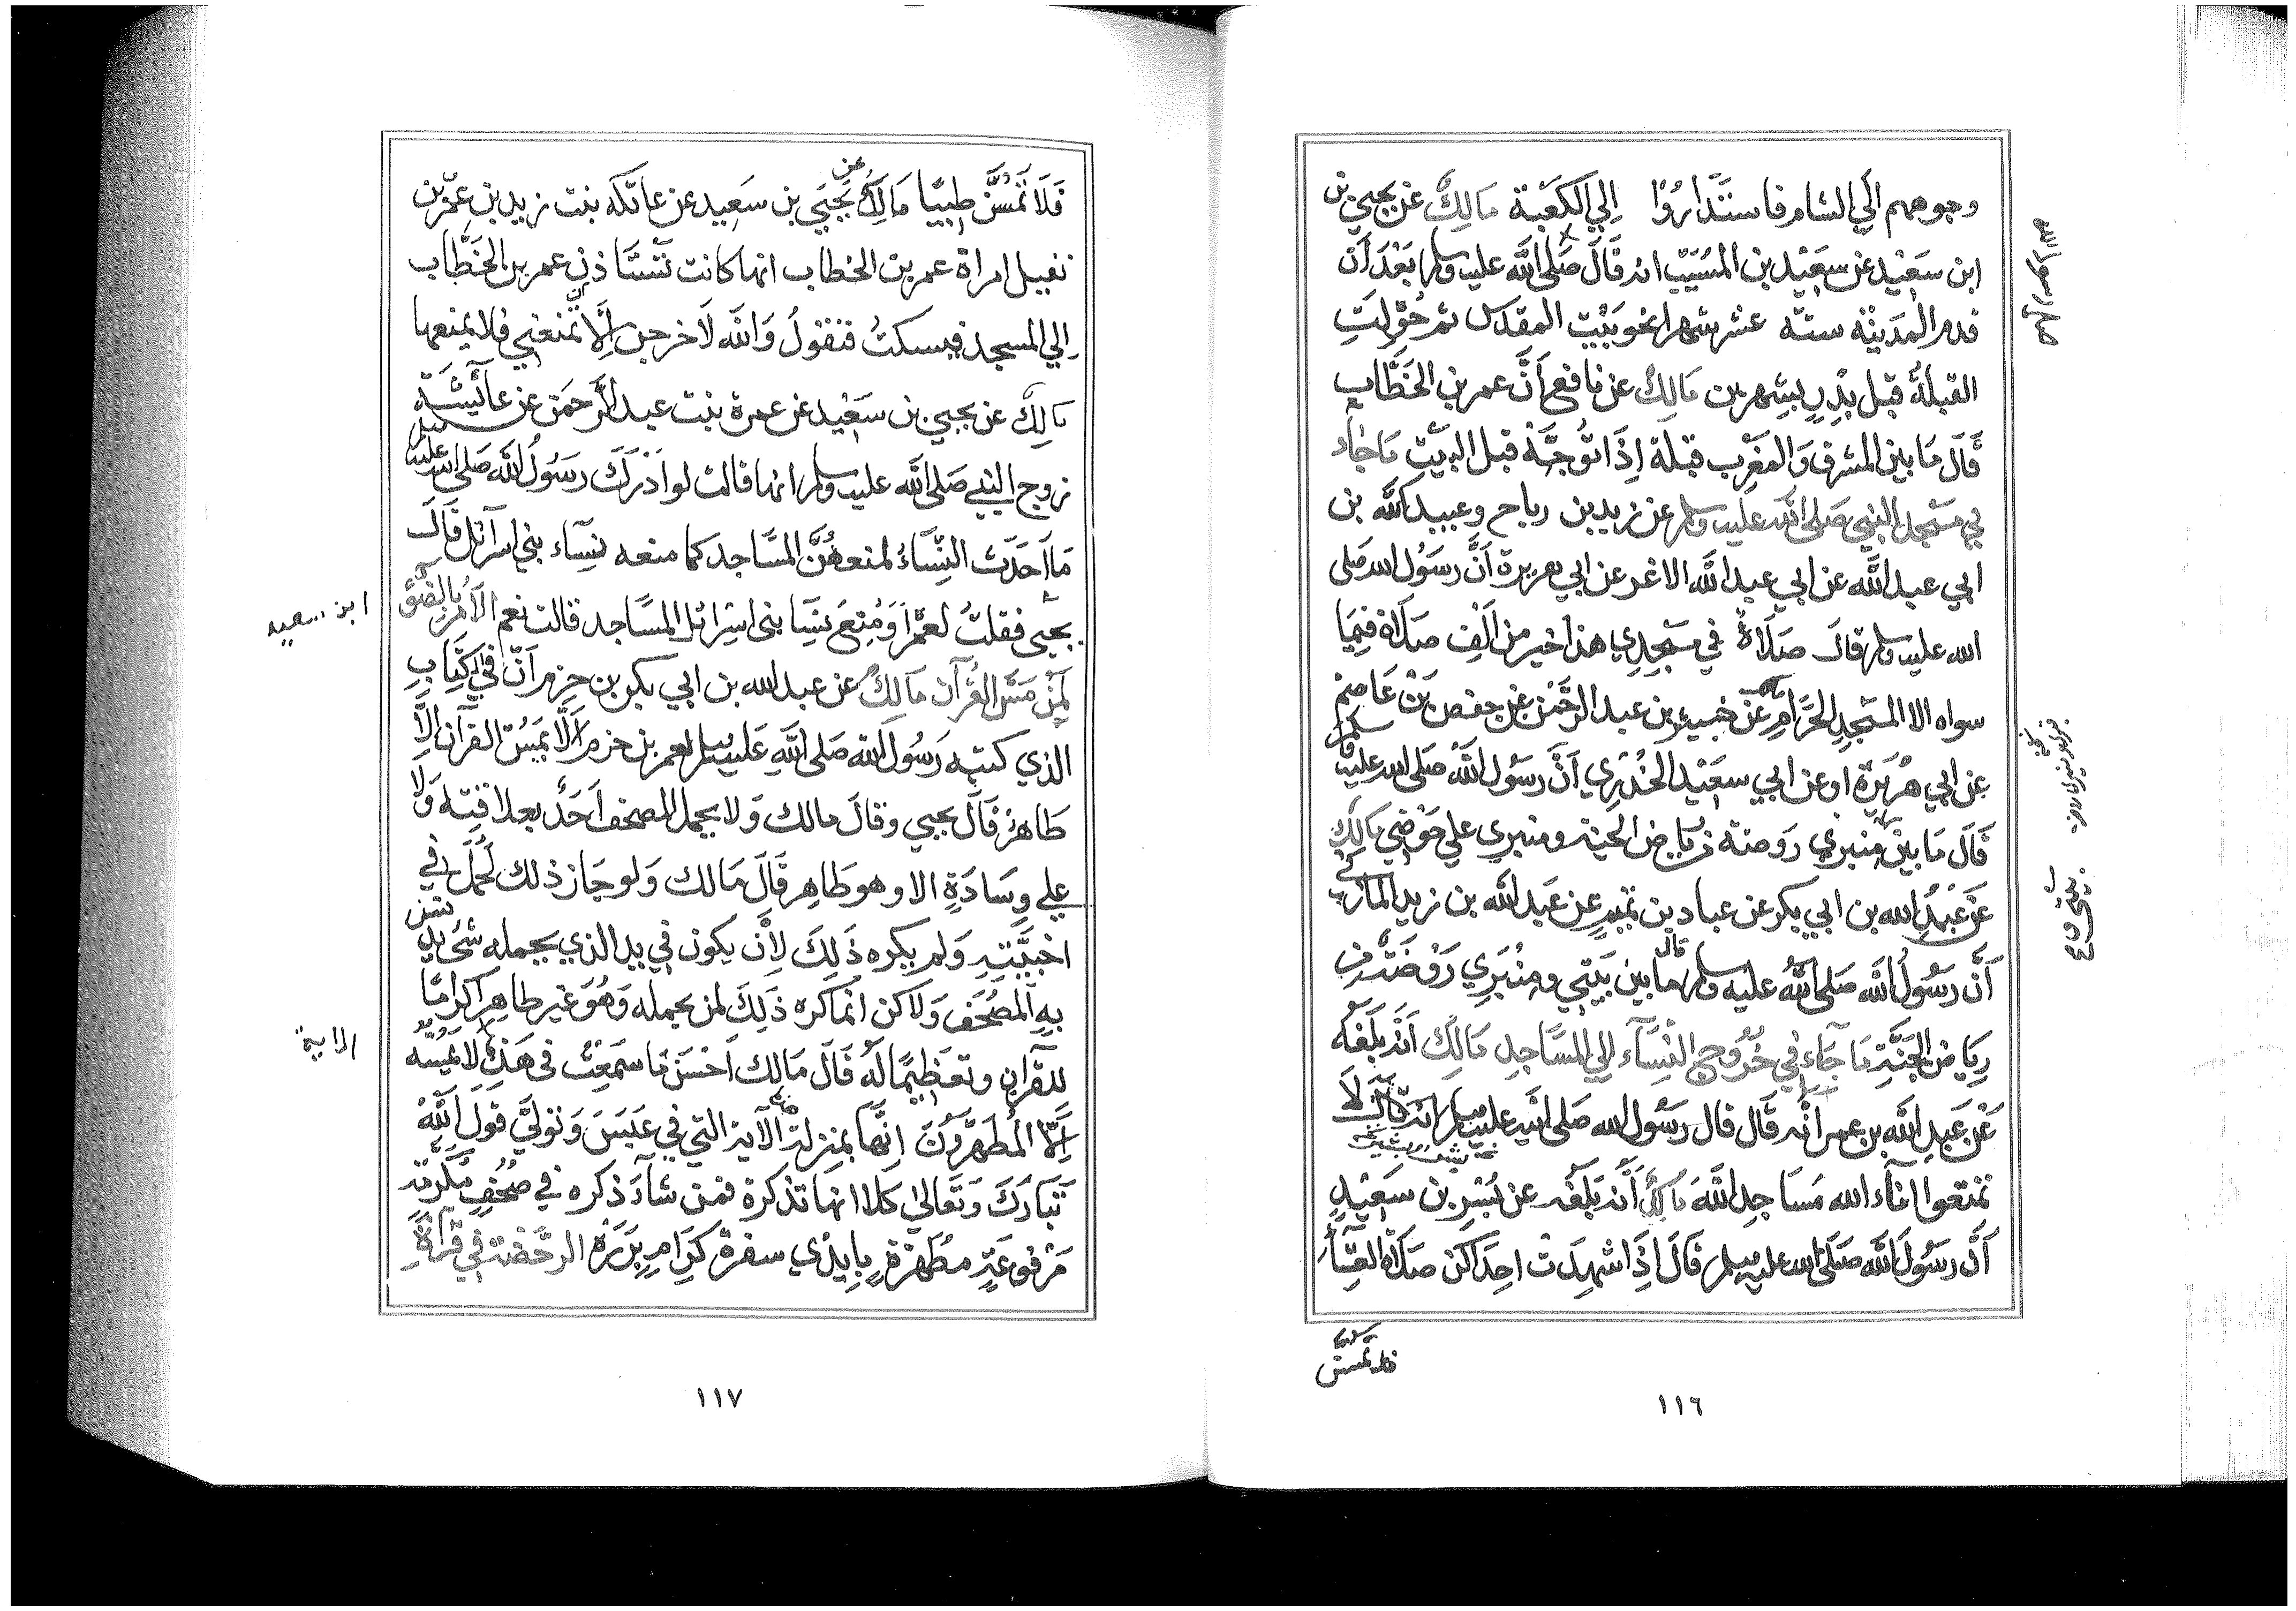 وجوههم الي الشام فاستداروا الي الكعبة مالك عن يحيي بن
ابن سعيد عن سعيد بن المسيب انه قال صلى الله عليه وسلم بعد أن
قدم المدينه ستة عشر شهرا نحو بيت المقدس ثم حولت
القبلة قبل بدر بشهرين مالك عن نافع أن عمر بن الخطاب
قال ما بين المشرق والمغرب قبلة إذا توجه قبل البيت ما جاء
في مسجد النبي صلى الله عليه وسلم عن زيد بن رباح وعبيد الله بن
ابي عبد الله عن ابي عبد الله الاغر عن ابي هريرة أن رسول الله صلى
الله عليه وسلم قال صلاة في مسجدي هذا خير من الف صلاة فيما
سواه الا المسجد الحرام عن خبيب بن عبد الرحمن عن حفص بن عاصم
عن ابي هريرة او عن ابي سعيد الخدري أن رسول الله صلى الله عليه وسلم
قال ما بين منبري روضة من رياض الجنة ومنبري علي حوضي مالك
عن عبد الله بن ابي بكر عن عباد بن تميم عن عبد الله بن زيد المازني
أن رسول الله صلى الله عليه وسلم قال ما بين بيتي ومنبري روضة من
رياض الجنة ما جاء في خروج النساء الي المساجد مالك أنه بلغه
عن عبد الله بن عمر انه قال قال رسول الله صلى الله عليه وسلم لا
تمنعوا اماء الله مساجد الله مالك أنه بلغه عن بسر بن سعيد
أن رسول الله صلى الله عليه وسلم قال اذا شهدت احداكن صلاة العشاء
فلا تمسن
١١٦
فلا تمسن طيبا مالك عن يحيي بن سعيد عن عاتكه بنت زيد بن عمرو بن
نفيل امراة عمر بن الخطاب انها كانت تستاذن عمر بن الخطاب
الي المسجد فيسكت فتقول والله لاخرجن إلا أن تمنعني فلا يمنعها
مالك عن يحيي بن سعيد عن عمرة بنت عبد الرحمن عن عائشة
زوج النبي صلى الله عليه وسلم انها قالت لو ادرك رسول الله صلى الله عليه وسلم
ما احدث النساء لمنعهن المساجد كما منعه نساء بني اسرائل قال
يحيى فقلت لعمرة او منع نسا بنى اسرائل المساجد قالت نعم الامر بالوضوء
ابن سعيد
لمن مس القرآن مالك عن عبد الله بن ابي بكر بن حزم أن في الكتاب
الذي كتبه رسول الله صلى الله عليه وسلم لعمر بن حزم ألا يمس القرآن الا
طاهر قال يحيي وقال مالك ولا يحمل المصحف احد بعلاقته ولا
علي وسادة الا وهو طاهر قال مالك ولو جاز ذلك لحمل في
اخبيته ولم يكره ذلك لأن يكون في يد الذي يحمله شئ يدنس
به المصحف ولاكن انما كره ذلك لمن يحمله وهو غير طاهر اكراما
للقرآن وتعظيما له قال مالك احسن ما سمعت فى هذه لا يمسه
الاية
إلا المطهرون انها بمنزلة الآية التي في عبس وتولي قول الله
تبارك وتعالى كلا انها تذكرة فمن شاء ذكره في صحف مكرمة
مرفوعة مطهرة بايدي سفرة كرام بررة الرخصة في قراة
١١٧